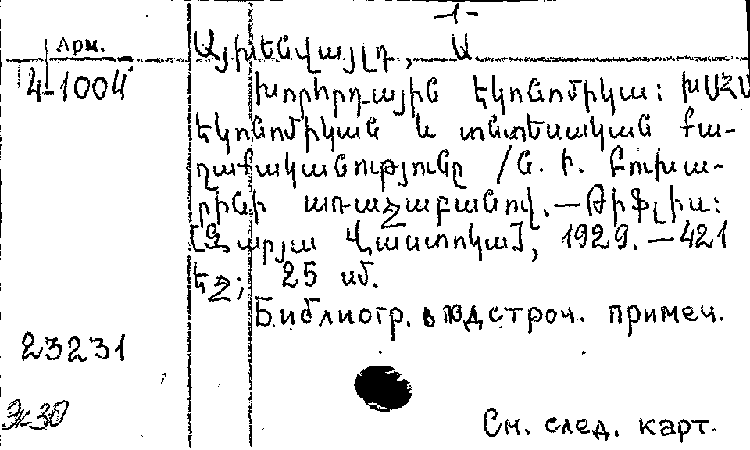 -1-
Арм.
Այխենվալդ, Ա.
4-1004
Խորհրդային էկոնոմիկա: ԽՍՀՄ
էկոնոմիկան և տնտեսական քա-
ղաքականությունը /Ն. Ի. Բուխա-
րինի առաջաբանով.—Թիֆլիս:
[Զարյա Վաստոկա], 1929.—421
եջ; 25 սմ.
Библиогр. в подстроч. примеч.
23231
Эк30
См. след. карт.